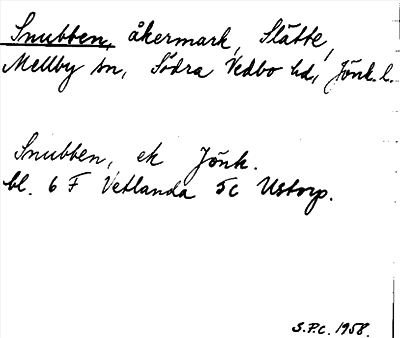 Snubben, åkermark, Slätte,
Mellby sn, Södra Vedbo hd, Jönk. l.
Snubben, ek Jönk.
bl. 6 F Vetlanda 5c Ustorp.
S.P.C. 1958.